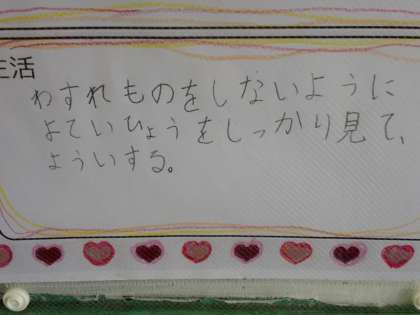 生活
わすれものをしないように
よていひょうをしっかり見て、
よういする。